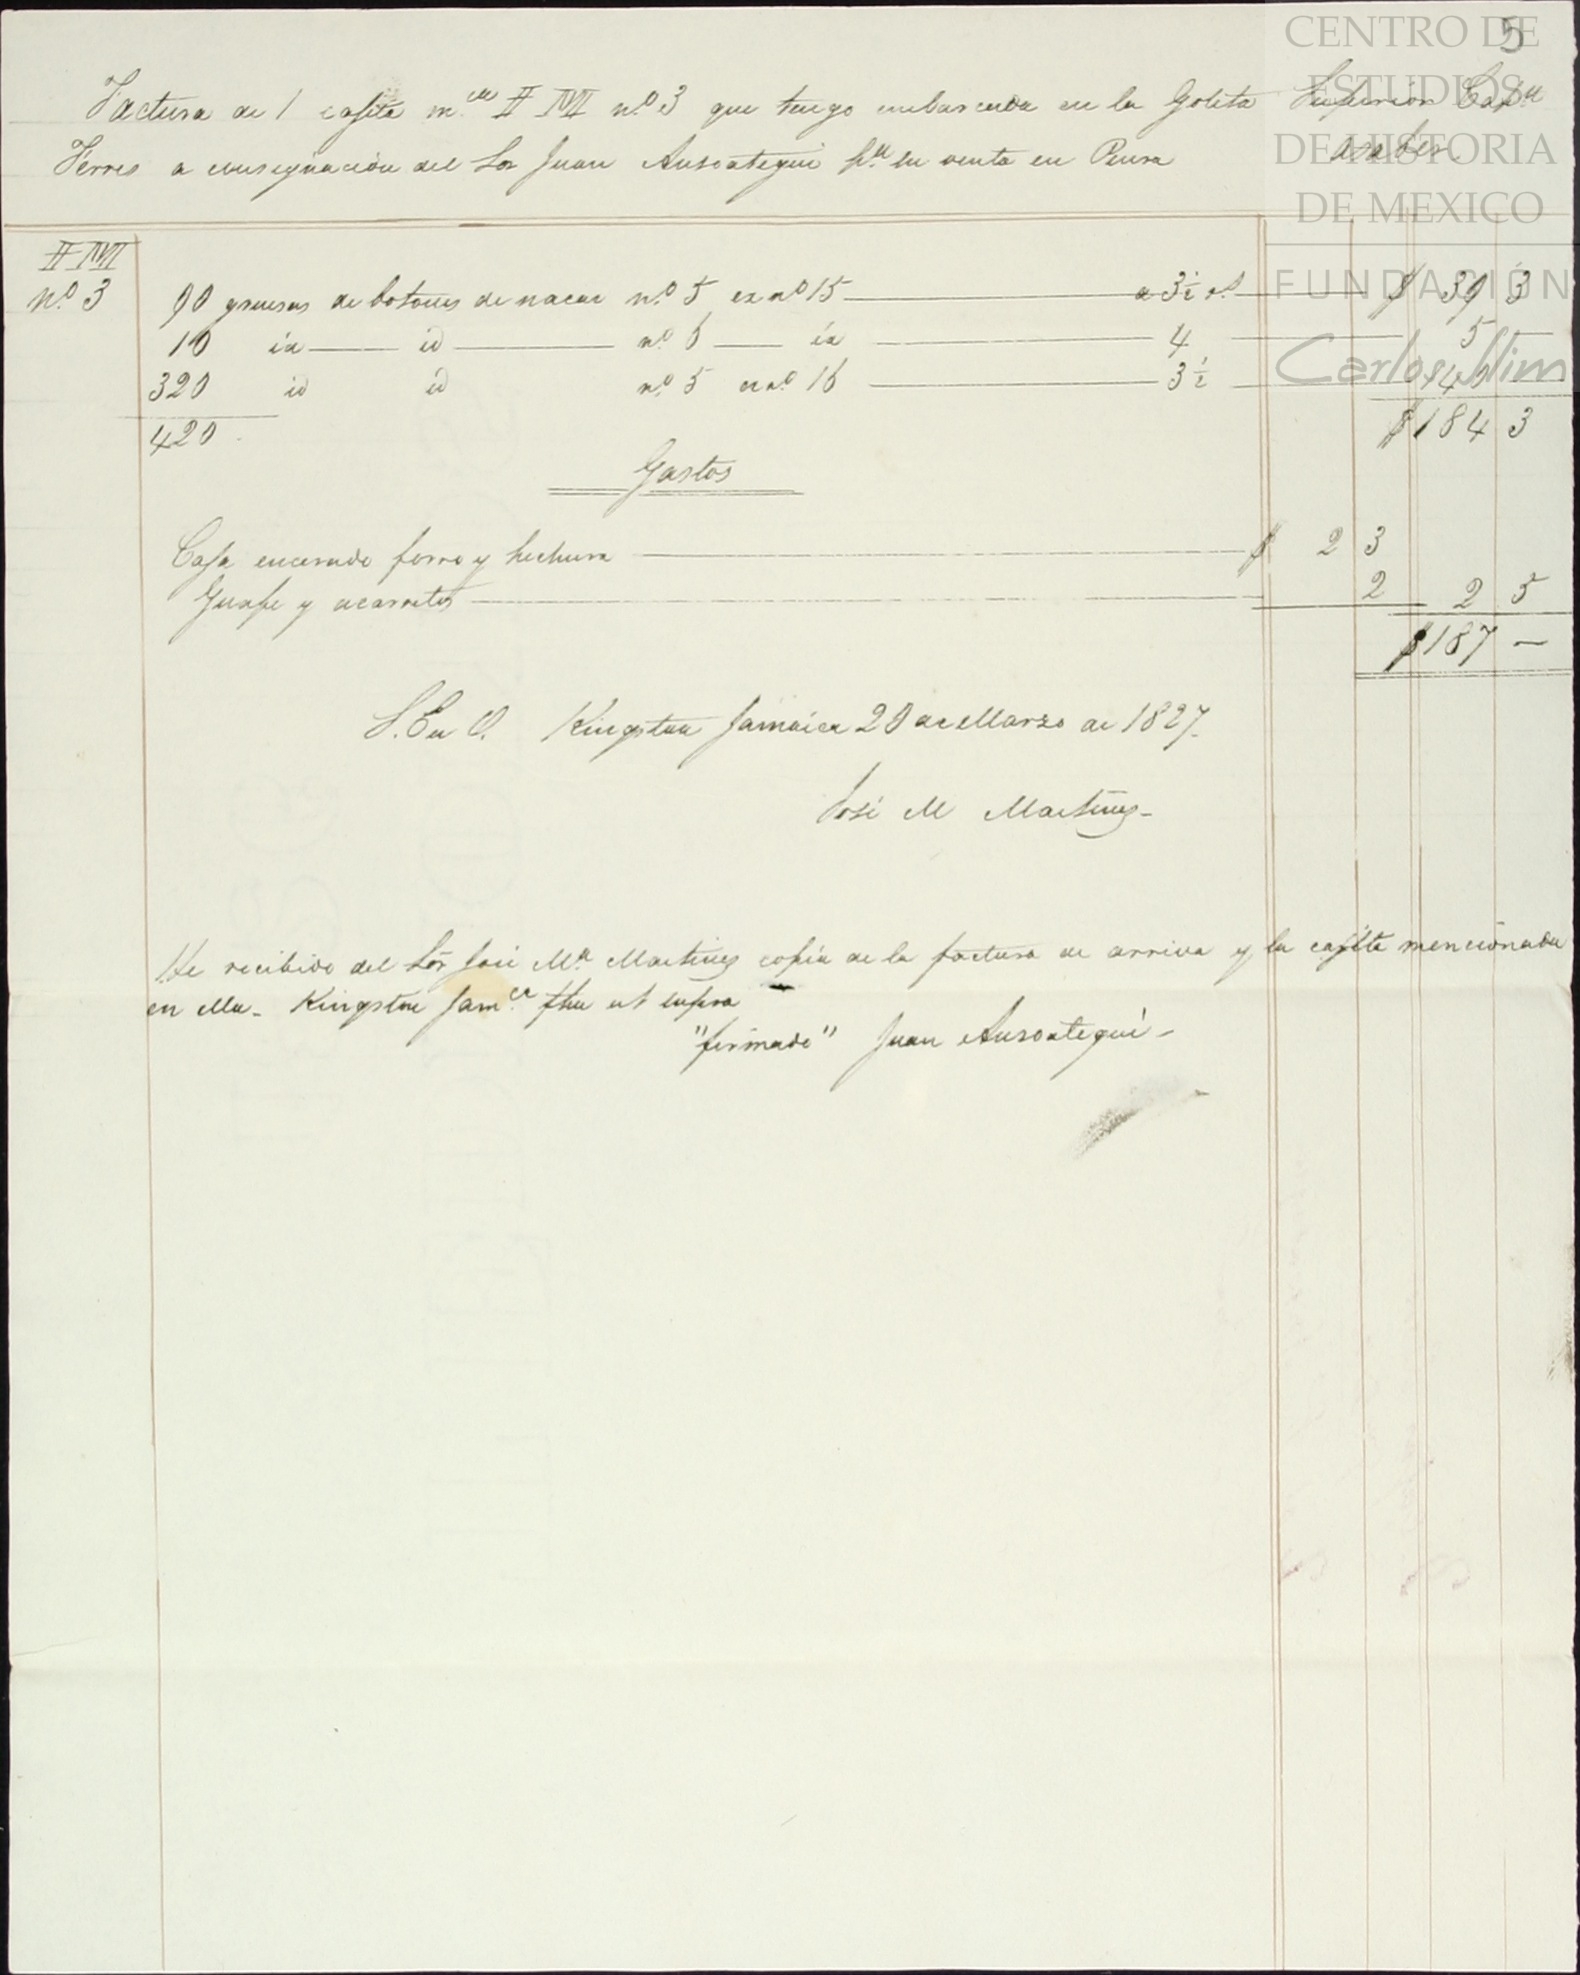 CENTRO DE
ESTUDIOS
DE HISTORIA
DE MEXICO
FUNDACIÓN
Carlos Slim
5
Factura de 1 cajita m.ca nº 3 que tengo embarcada en la Goleta Superior Cap.n
Ferres a consignación del Sor Juan Ansoategui p.a su venta en Piura a saber.
nº 3 90 gruesas de botones de nacar nº 5 ca nº 15 a 3½ r.s $ 39 3
10 id id nº 6 id 4 5
320 id id nº 5 ca nº 16 3½ 140
420 $184 3
Gastos
Caja encerado forro y hechura $ 2 3
Guape y acarretos 2 2 5
$187 —
S. E u O. Kingston Jamaica 20 de Marzo de 1827.
José M Martinez
He recibido del Sor José M.a Martinez copia de la factura de arriva y la cajita mencionada
en ella. Kingston Jam.ca fha ut supra
"firmado" Juan Ansoategui